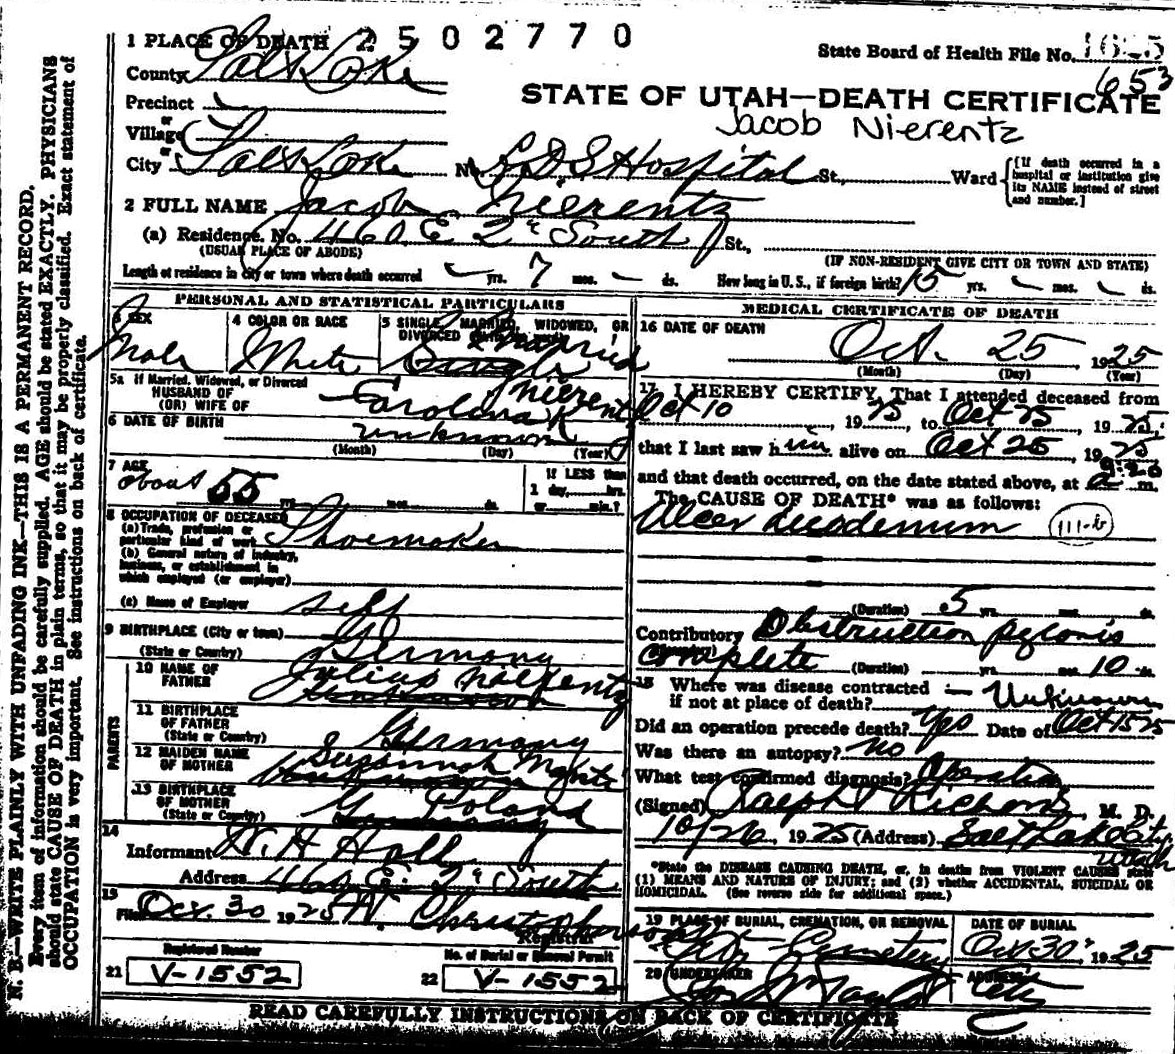 1 PLACE OF DEATH 2502770
State Board of Health File No. 1625
653
County Salt Lake
STATE OF UTAH—DEATH CERTIFICATE
Precinct
Jacob Nierentz
or
Village
or
City Salt Lake No. L.D.S Hospital St., Ward {[If death occurred in a hospital or institution give its NAME instead of street and number.]
2 FULL NAME Jacob Nierentz
(a) Residence. No. 460 E 2" South St.,
(USUAL PLACE OF ABODE) (IF NON-RESIDENT GIVE CITY OR TOWN AND STATE)
Length of residence in city or town where death occurred yrs. 7 mos. ds. How long in U. S., if foreign birth? 15 yrs. mos. ds.
PERSONAL AND STATISTICAL PARTICULARS
3 SEX Male
4 COLOR OR RACE White
5 SINGLE, MARRIED, WIDOWED, OR DIVORCED Married Single
5a If Married, Widowed, or Divorced
HUSBAND OF
(OR) WIFE OF Carolina K Nierentz
6 DATE OF BIRTH unknown
(Month) (Day) (Year)
7 AGE about 55 yrs. mos. ds. If LESS than 1 day, hrs. or min.?
8 OCCUPATION OF DECEASED
(a) Trade, profession or particular kind of work Shoemaker
(b) General nature of industry, business, or establishment in which employed (or employer)
(c) Name of Employer self
9 BIRTHPLACE (City or town)
(State or Country) Germany
PARENTS
10 NAME OF FATHER Julius Nierentz unknown
11 BIRTHPLACE OF FATHER
(State or Country) Germany
12 MAIDEN NAME OF MOTHER Susannah unknown
13 BIRTHPLACE OF MOTHER
(State or Country) Poland Germany
14
Informant W. H Hall
Address 460 E. 2" South
15
Filed Oct. 30 1925 Christopherson
Registrar
Registered Number
21 V-1552
No. of Burial or Removal Permit
22 V-1552
MEDICAL CERTIFICATE OF DEATH
16 DATE OF DEATH
Oct. 25 1925
(Month) (Day) (Year)
17 I HEREBY CERTIFY, That I attended deceased from
Oct 10 1925 to Oct 25 1925
that I last saw him alive on Oct 25, 1925
and that death occurred, on the date stated above, at a m.
The CAUSE OF DEATH* was as follows:
Ulcer Duodenum 111-b
(Duration) 5 yrs. mos. ds.
Contributory Obstruction pylorus
complete (Duration) yrs. mos. 10 ds.
18 Where was disease contracted
if not at place of death? Unknown
Did an operation precede death? Yes Date of Oct 15 25
Was there an autopsy? no
What test confirmed diagnosis? Operation
(Signed) Ralph T Richards, M. D.
10/26, 1925 (Address) Salt Lake City Utah
*State the DISEASE CAUSING DEATH, or, in deaths from VIOLENT CAUSES state
(1) MEANS AND NATURE OF INJURY; and (2) whether ACCIDENTAL, SUICIDAL OR
HOMICIDAL. (See reverse side for additional space.)
19 PLACE OF BURIAL, CREMATION, OR REMOVAL City Cemetery
DATE OF BURIAL Oct 30, 1925
20 UNDERTAKER Taylor
ADDRESS City
READ CAREFULLY INSTRUCTIONS ON BACK OF CERTIFICATE
N. B.—WRITE PLAINLY WITH UNFADING INK—THIS IS A PERMANENT RECORD.
Every item of information should be carefully supplied. AGE should be stated EXACTLY. PHYSICIANS
should state CAUSE OF DEATH in plain terms, so that it may be properly classified. Exact statement of
OCCUPATION is very important. See instructions on back of certificate.